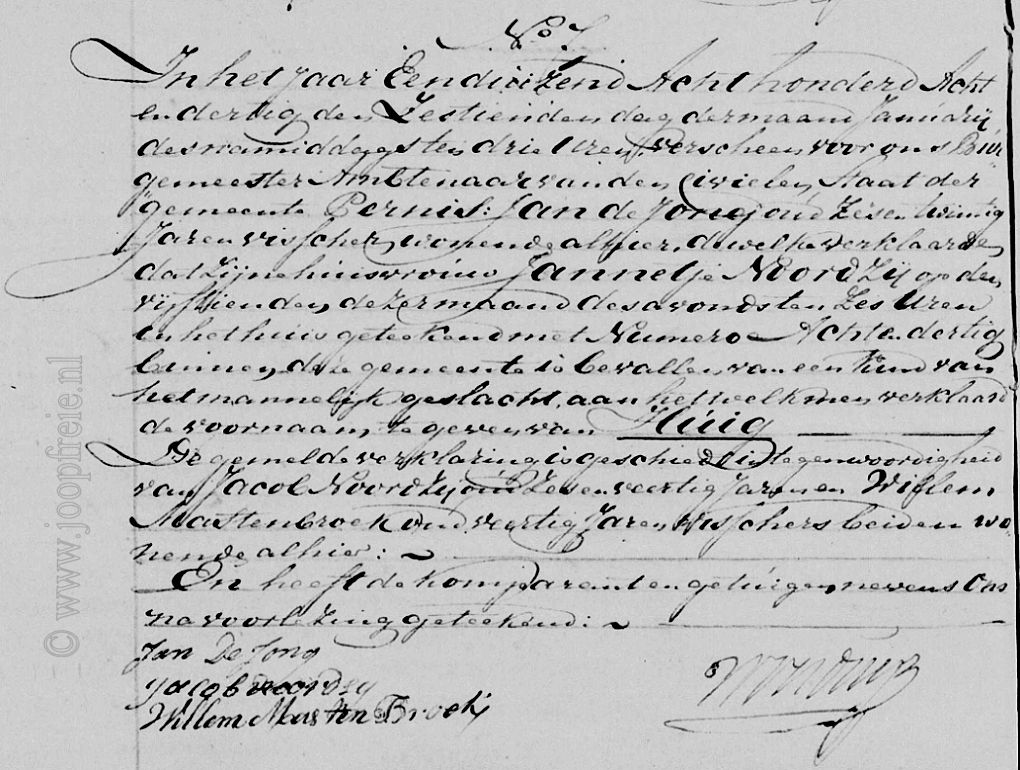 No 7.
In het Jaar Eenduizend Acht honderd Acht
en dertig den Zestienden dag der maand Januarij
des namiddags ten drie Uren, verscheen voor ons Bur
gemeester Ambtenaar van den Civielen Staat der
gemeente Pernis: Jan de Jong oud Zes en twintig
Jaren visscher, wonende alhier, dewelke verklaarde,
dat zijne huisvrouw Jannetje Noordzij op den
vijftienden dezer maand des avonds ten Zes Uren
in het huis geteekend met Numero Acht en dertig
binnen deze gemeente is bevallen van een kind van
het mannelijk geslacht, aan hetwelk men verklaard
de voornaam te geven van Huig
De gemelde verklaring is geschied in tegenwoordigheid
van Jacob Noordzij oud Zes en veertig Jaren en Willem
Mastenbroek oud veertig Jaren visschers beiden wo
nende alhier:
En heeft de komparant en getuigen nevens Ons
na voorlezing geteekend:
Jan De Jong
yacob noordzy
Willem Mas ten Broek
© www.joopfreier.nl